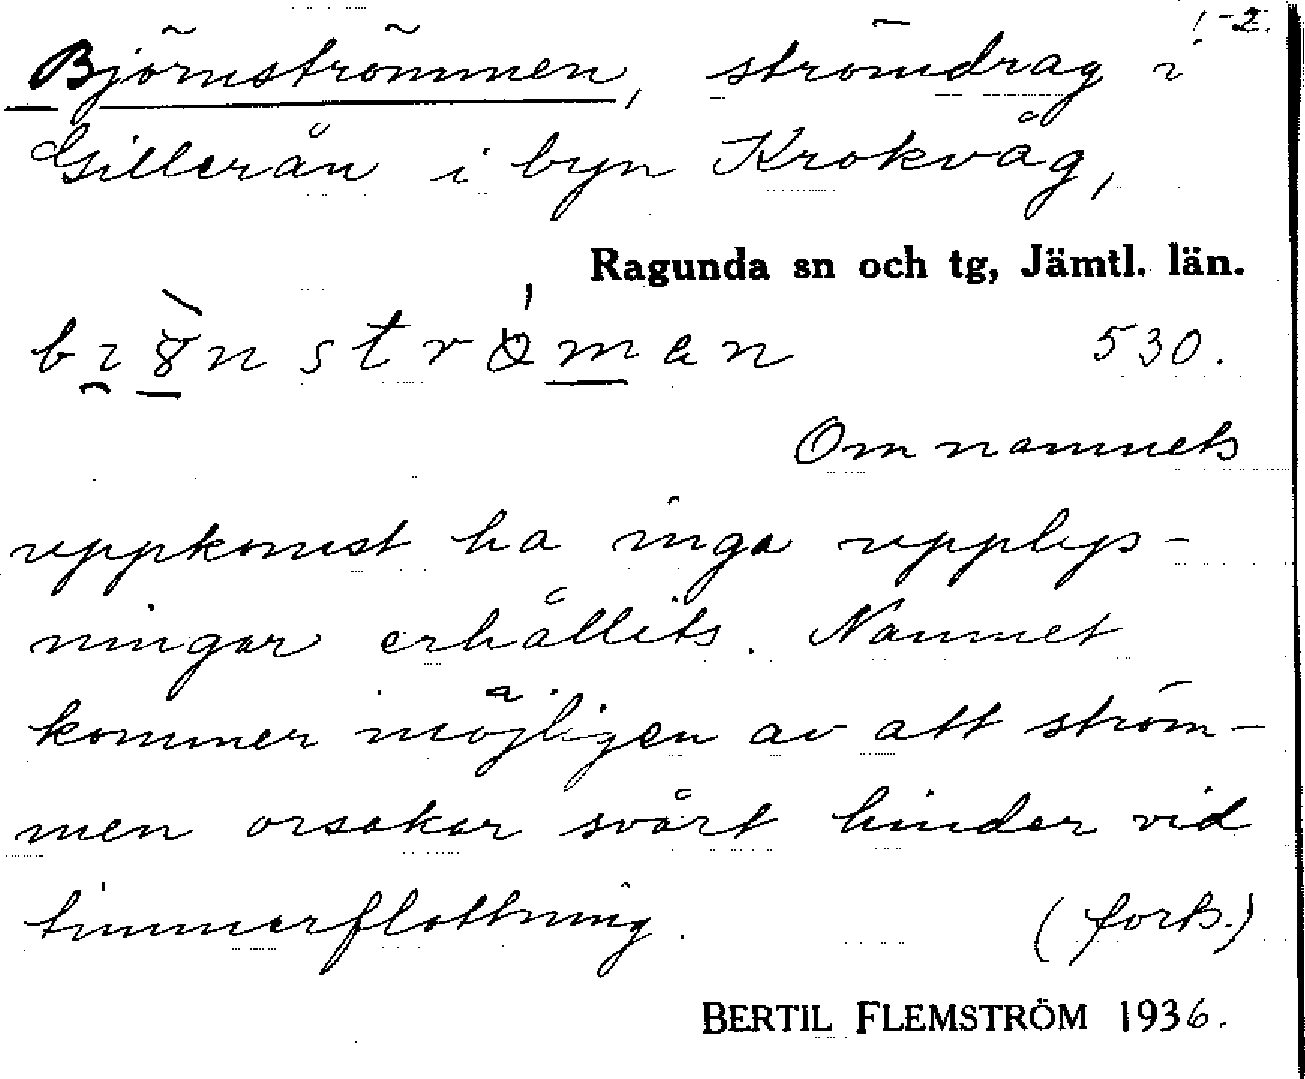 1-2.
Björnströmmen, strömdrag i
Gillerån i byn Krokvåg,
Ragunda sn och tg, Jämtl. län.
530.
Om namnets
uppkomst ha inga upplys-
ningar erhållits. Namnet
kommer möjligen av att ström-
men orsakar svårt hinder vid
timmerflottning.
(forts.)
BERTIL FLEMSTRÖM 1936.